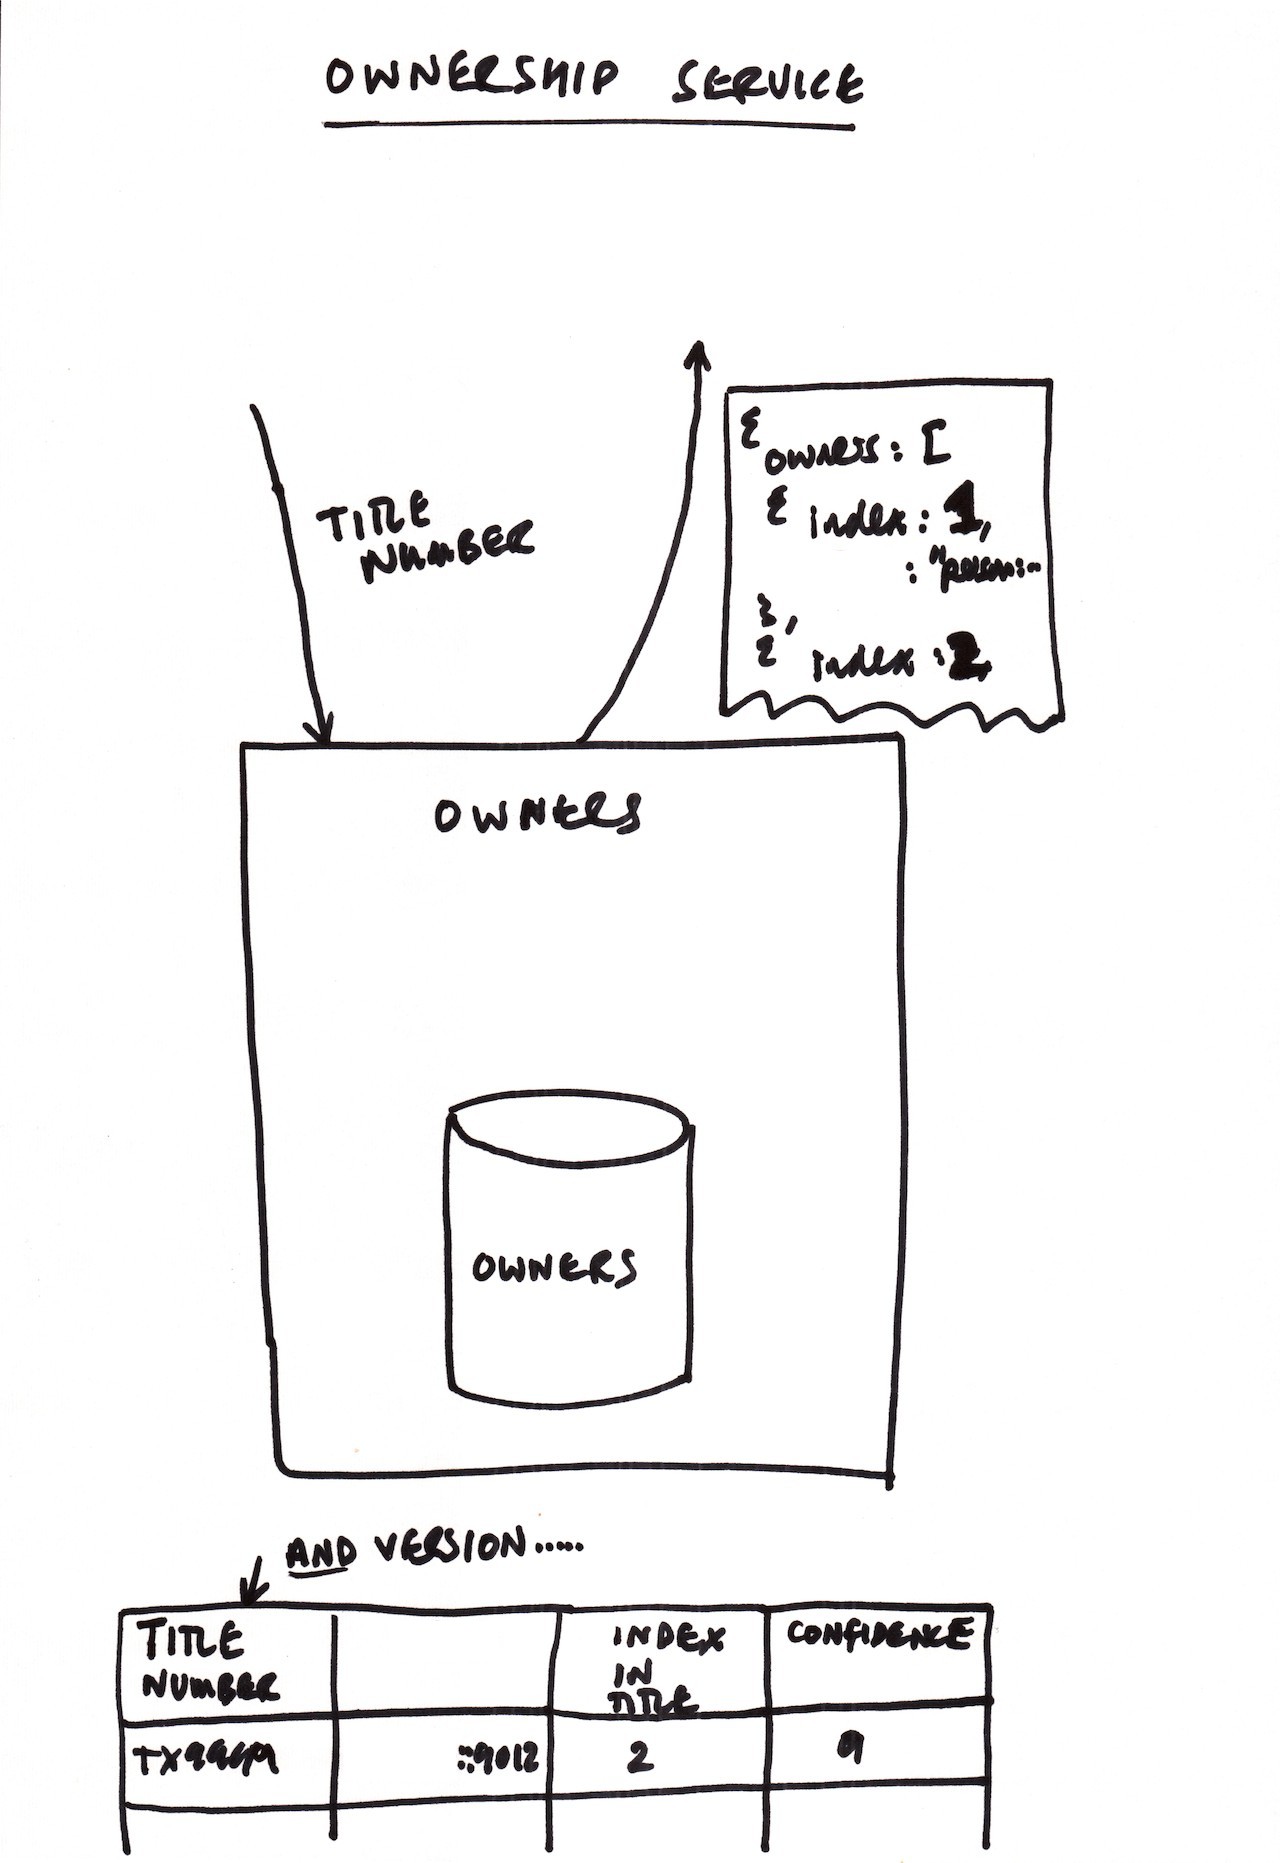 OWNERSHIP SERVICE
TITLE
NUMBER
{
owners: [
{ index: 1,
},
{ index: 2,
OWNERS
OWNERS
AND VERSION.....
TITLE
NUMBER
INDEX
IN
TITLE
CONFIDENCE
::9012
2
9